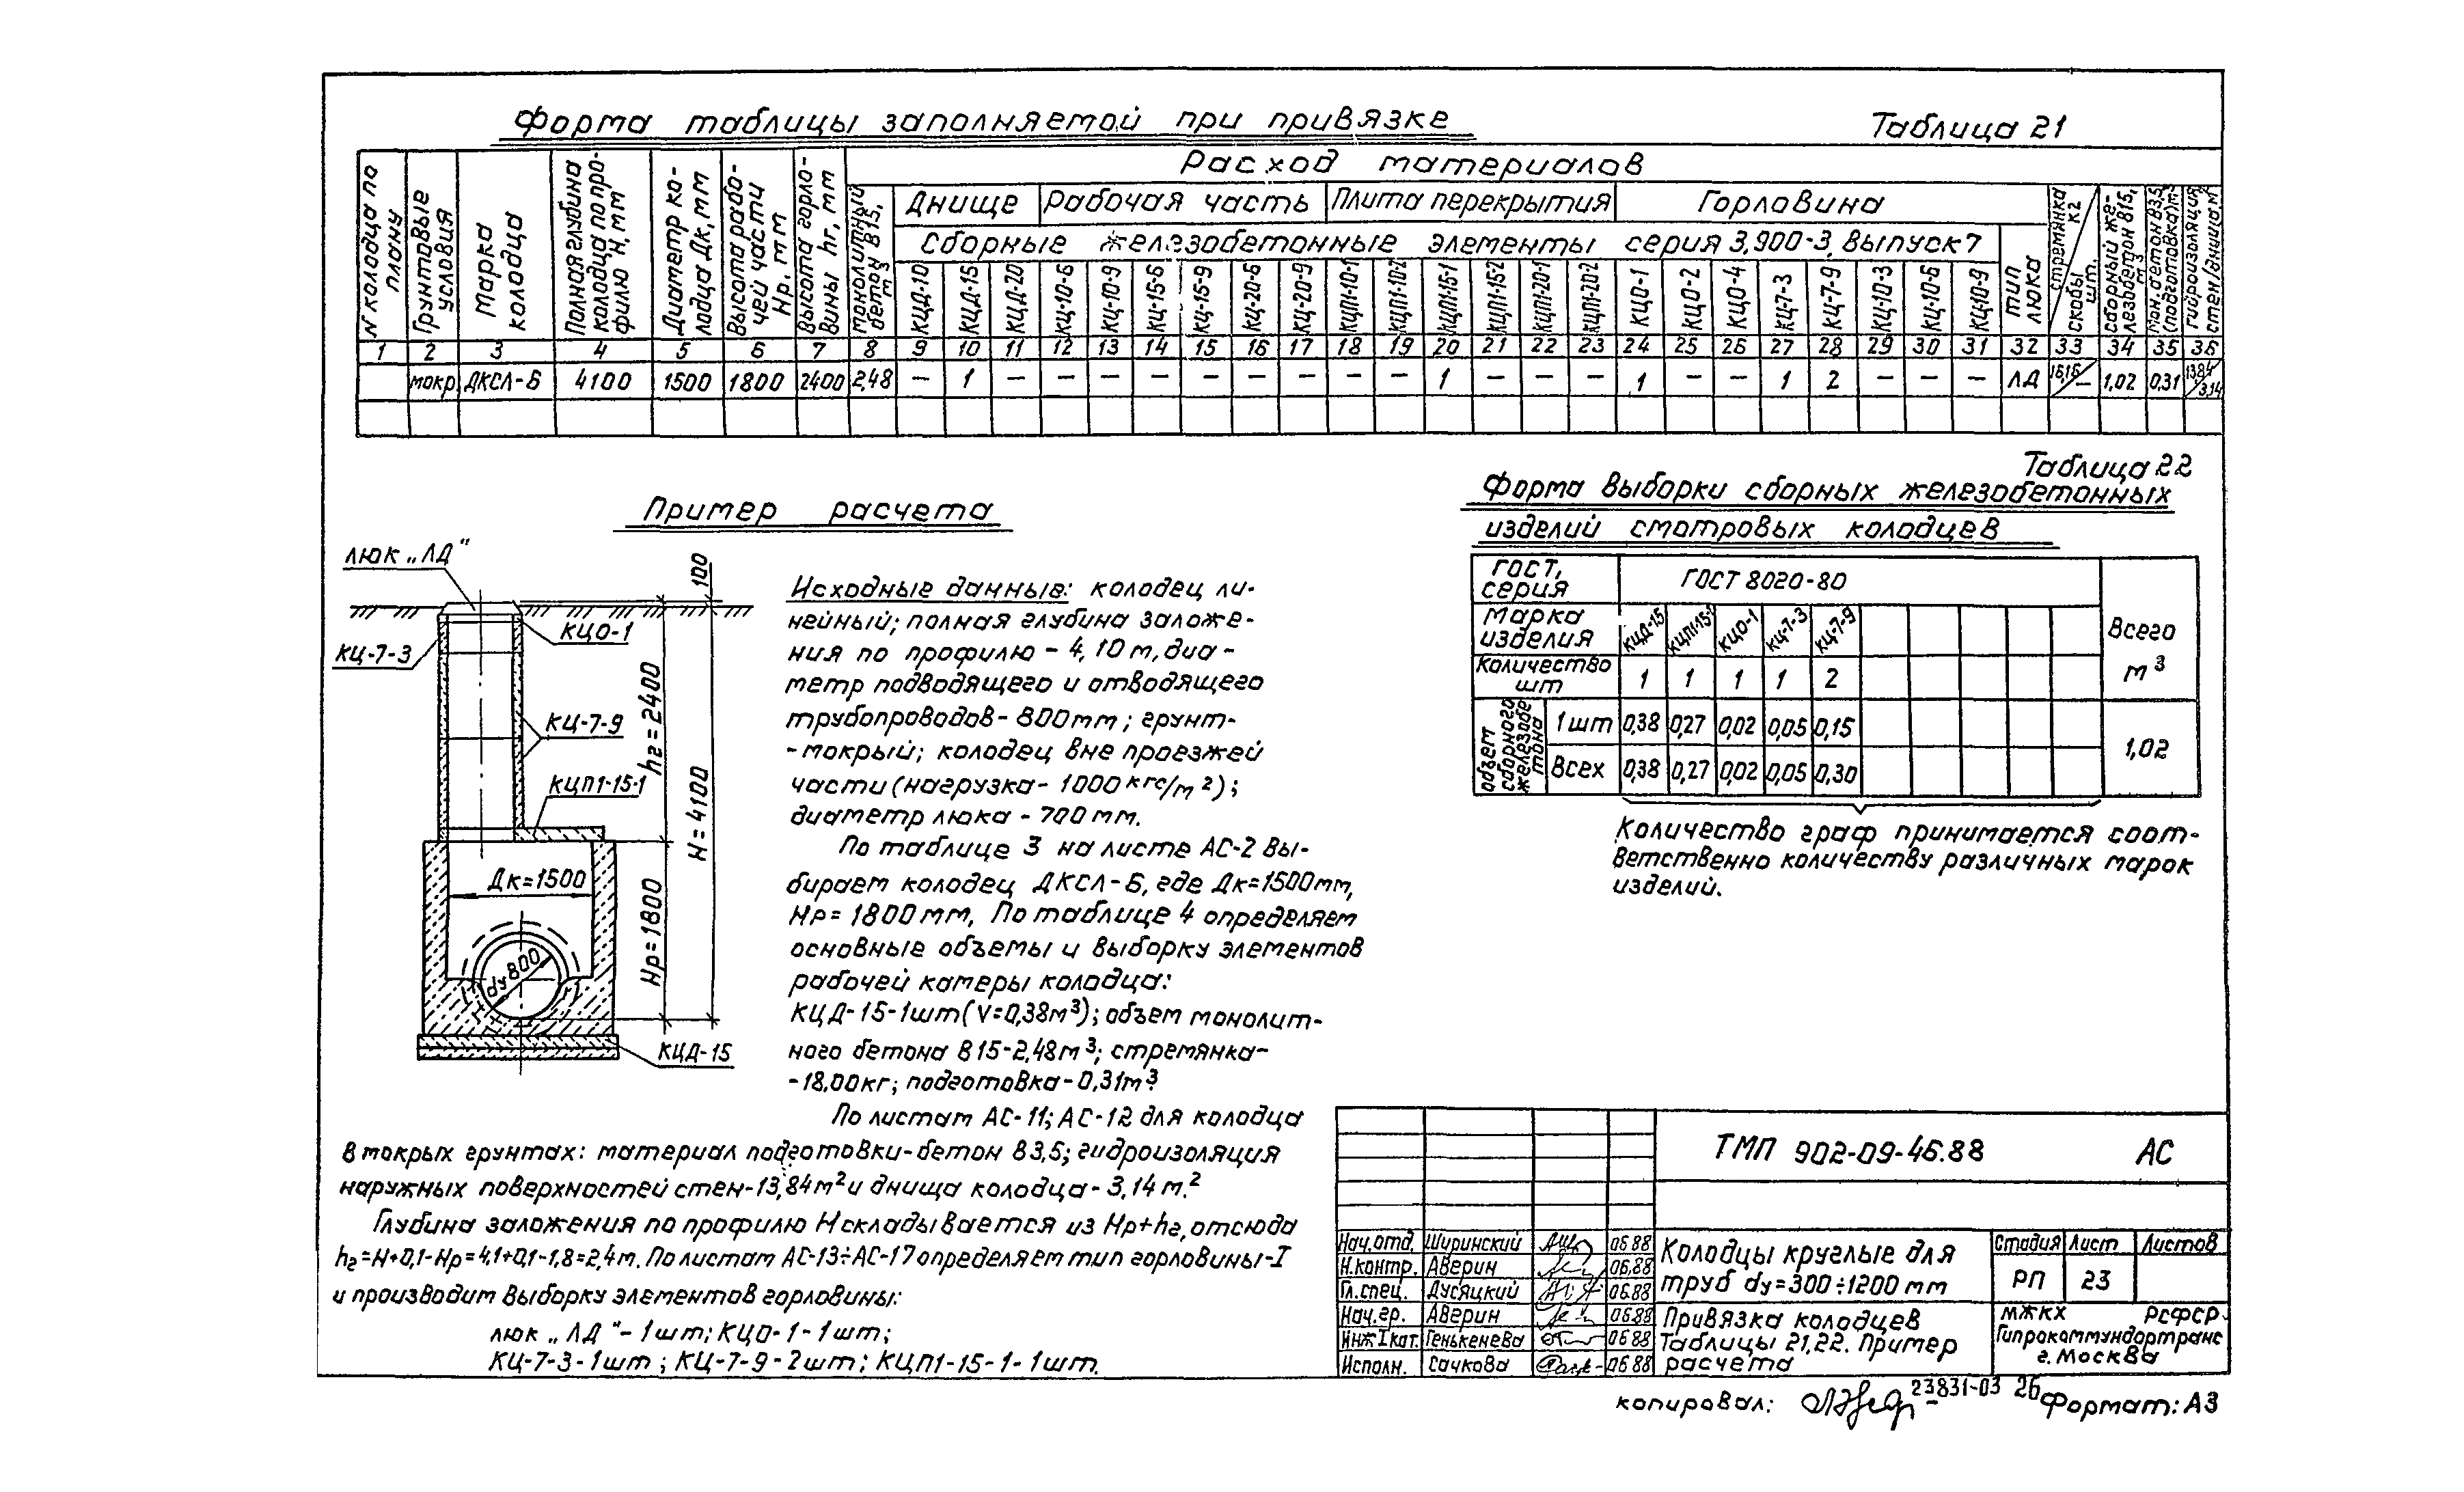 Форма таблицы заполняемой при привязке
Таблица 21
N колодца по плану
Грунтовые условия
Марка колодца
Полная глубина колодца по профилю H, мм
Диаметр колодца Дк, мм
Высота рабочей части Hр, мм
Высота горловины hг, мм
Расход материалов
монолитный бетон В15, м3
Днище
Рабочая часть
Плита перекрытия
Горловина
стремянка кг
скобы шт.
сборный железобетон В15, м3
мон. бетон В3,5 (подготовка) м3
гидроизоляция стен/днища м2
Сборные железобетонные элементы серия 3,900-3, выпуск 7
тип люка
КЦД-10 КЦД-15 КЦД-20 КЦ-10-6 КЦ-10-9 КЦ-15-6 КЦ-15-9 КЦ-20-6 КЦ-20-9 КЦП1-10-1 КЦП1-10-2 КЦП1-15-1 КЦП1-15-2 КЦП1-20-1 КЦП1-20-2 КЦО-1 КЦО-2 КЦО-4 КЦ-7-3 КЦ-7-9 КЦ-10-3 КЦ-10-6 КЦ-10-9
1 2 3 4 5 6 7 8 9 10 11 12 13 14 15 16 17 18 19 20 21 22 23 24 25 26 27 28 29 30 31 32 33 34 35 36
мокр. ДКСЛ-Б 4100 1500 1800 2400 2,48 – 1 – – – – – – – – – 1 – – – 1 – – 1 2 – – – ЛД – 1,02 0,31 13,84/3,14
Пример расчета
люк „ЛД"
100
КЦО-1
КЦ-7-3
hг=2400
КЦ-7-9
КЦП1-15-1
H=4100
Дк=1500
Hр=1800
dу800
КЦД-15
Исходные данные: колодец ли-
нейный; полная глубина заложе-
ния по профилю - 4,10 м, диа-
метр подводящего и отводящего
трубопроводов - 800мм; грунт-
-мокрый; колодец вне проезжей
части (нагрузка - 1000 кгс/м²);
диаметр люка - 700 мм.
По таблице 3 на листе АС-2 вы-
бираем колодец ДКСЛ-Б, где Дк=1500мм,
Hр=1800мм, По таблице 4 определяем
основные объемы и выборку элементов
рабочей камеры колодца:
КЦД-15-1шт (V=0,38м³); объем монолит-
ного бетона В15-2,48м³; стремянка-
-18,00кг; подготовка-0,31м³.
По листам АС-11; АС-12 для колодца
в мокрых грунтах: материал подготовки-бетон В3,5; гидроизоляция
наружных поверхностей стен-13,84м² и днища колодца-3,14 м.²
Глубина заложения по профилю H складывается из Hр+hг, отсюда
hг=H+0,1-Hр=4,1+0,1-1,8=2,4м. По листам АС-13÷АС-17 определяем тип горловины-I
и производим выборку элементов горловины:
люк „ЛД"-1шт; КЦО-1-1шт;
КЦ-7-3-1шт; КЦ-7-9-2шт; КЦП1-15-1-1шт.
Таблица 22
Форма выборки сборных железобетонных
изделий смотровых колодцев
ГОСТ, серия
ГОСТ 8020-80
Всего м³
Марка изделия
КЦД-15 КЦП1-15-1 КЦО-1 КЦ-7-3 КЦ-7-9
Количество шт
1 1 1 1 2
объем сборного железобетона
1шт 0,38 0,27 0,02 0,05 0,15
Всех 0,38 0,27 0,02 0,05 0,30
1,02
Количество граф принимается соот-
ветственно количеству различных марок
изделий.
ТМП 902-09-46.88 АС
Нач.отд. Ширинский 06.88
Н.контр. Аверин 06.88
Гл.спец. Дусяцкий 06.88
Нач.гр. Аверин 06.88
Инж I кат. Генькенева 06.88
Исполн. Сачкова 06.88
Колодцы круглые для
труб dу=300÷1200 мм
Стадия Лист Листов
РП 23
Привязка колодцев
Таблицы 21,22. Пример
расчета
МЖКХ РСФСР
Гипрокоммундортранс
г. Москва
копировал:
23831-03 26
Формат: А3